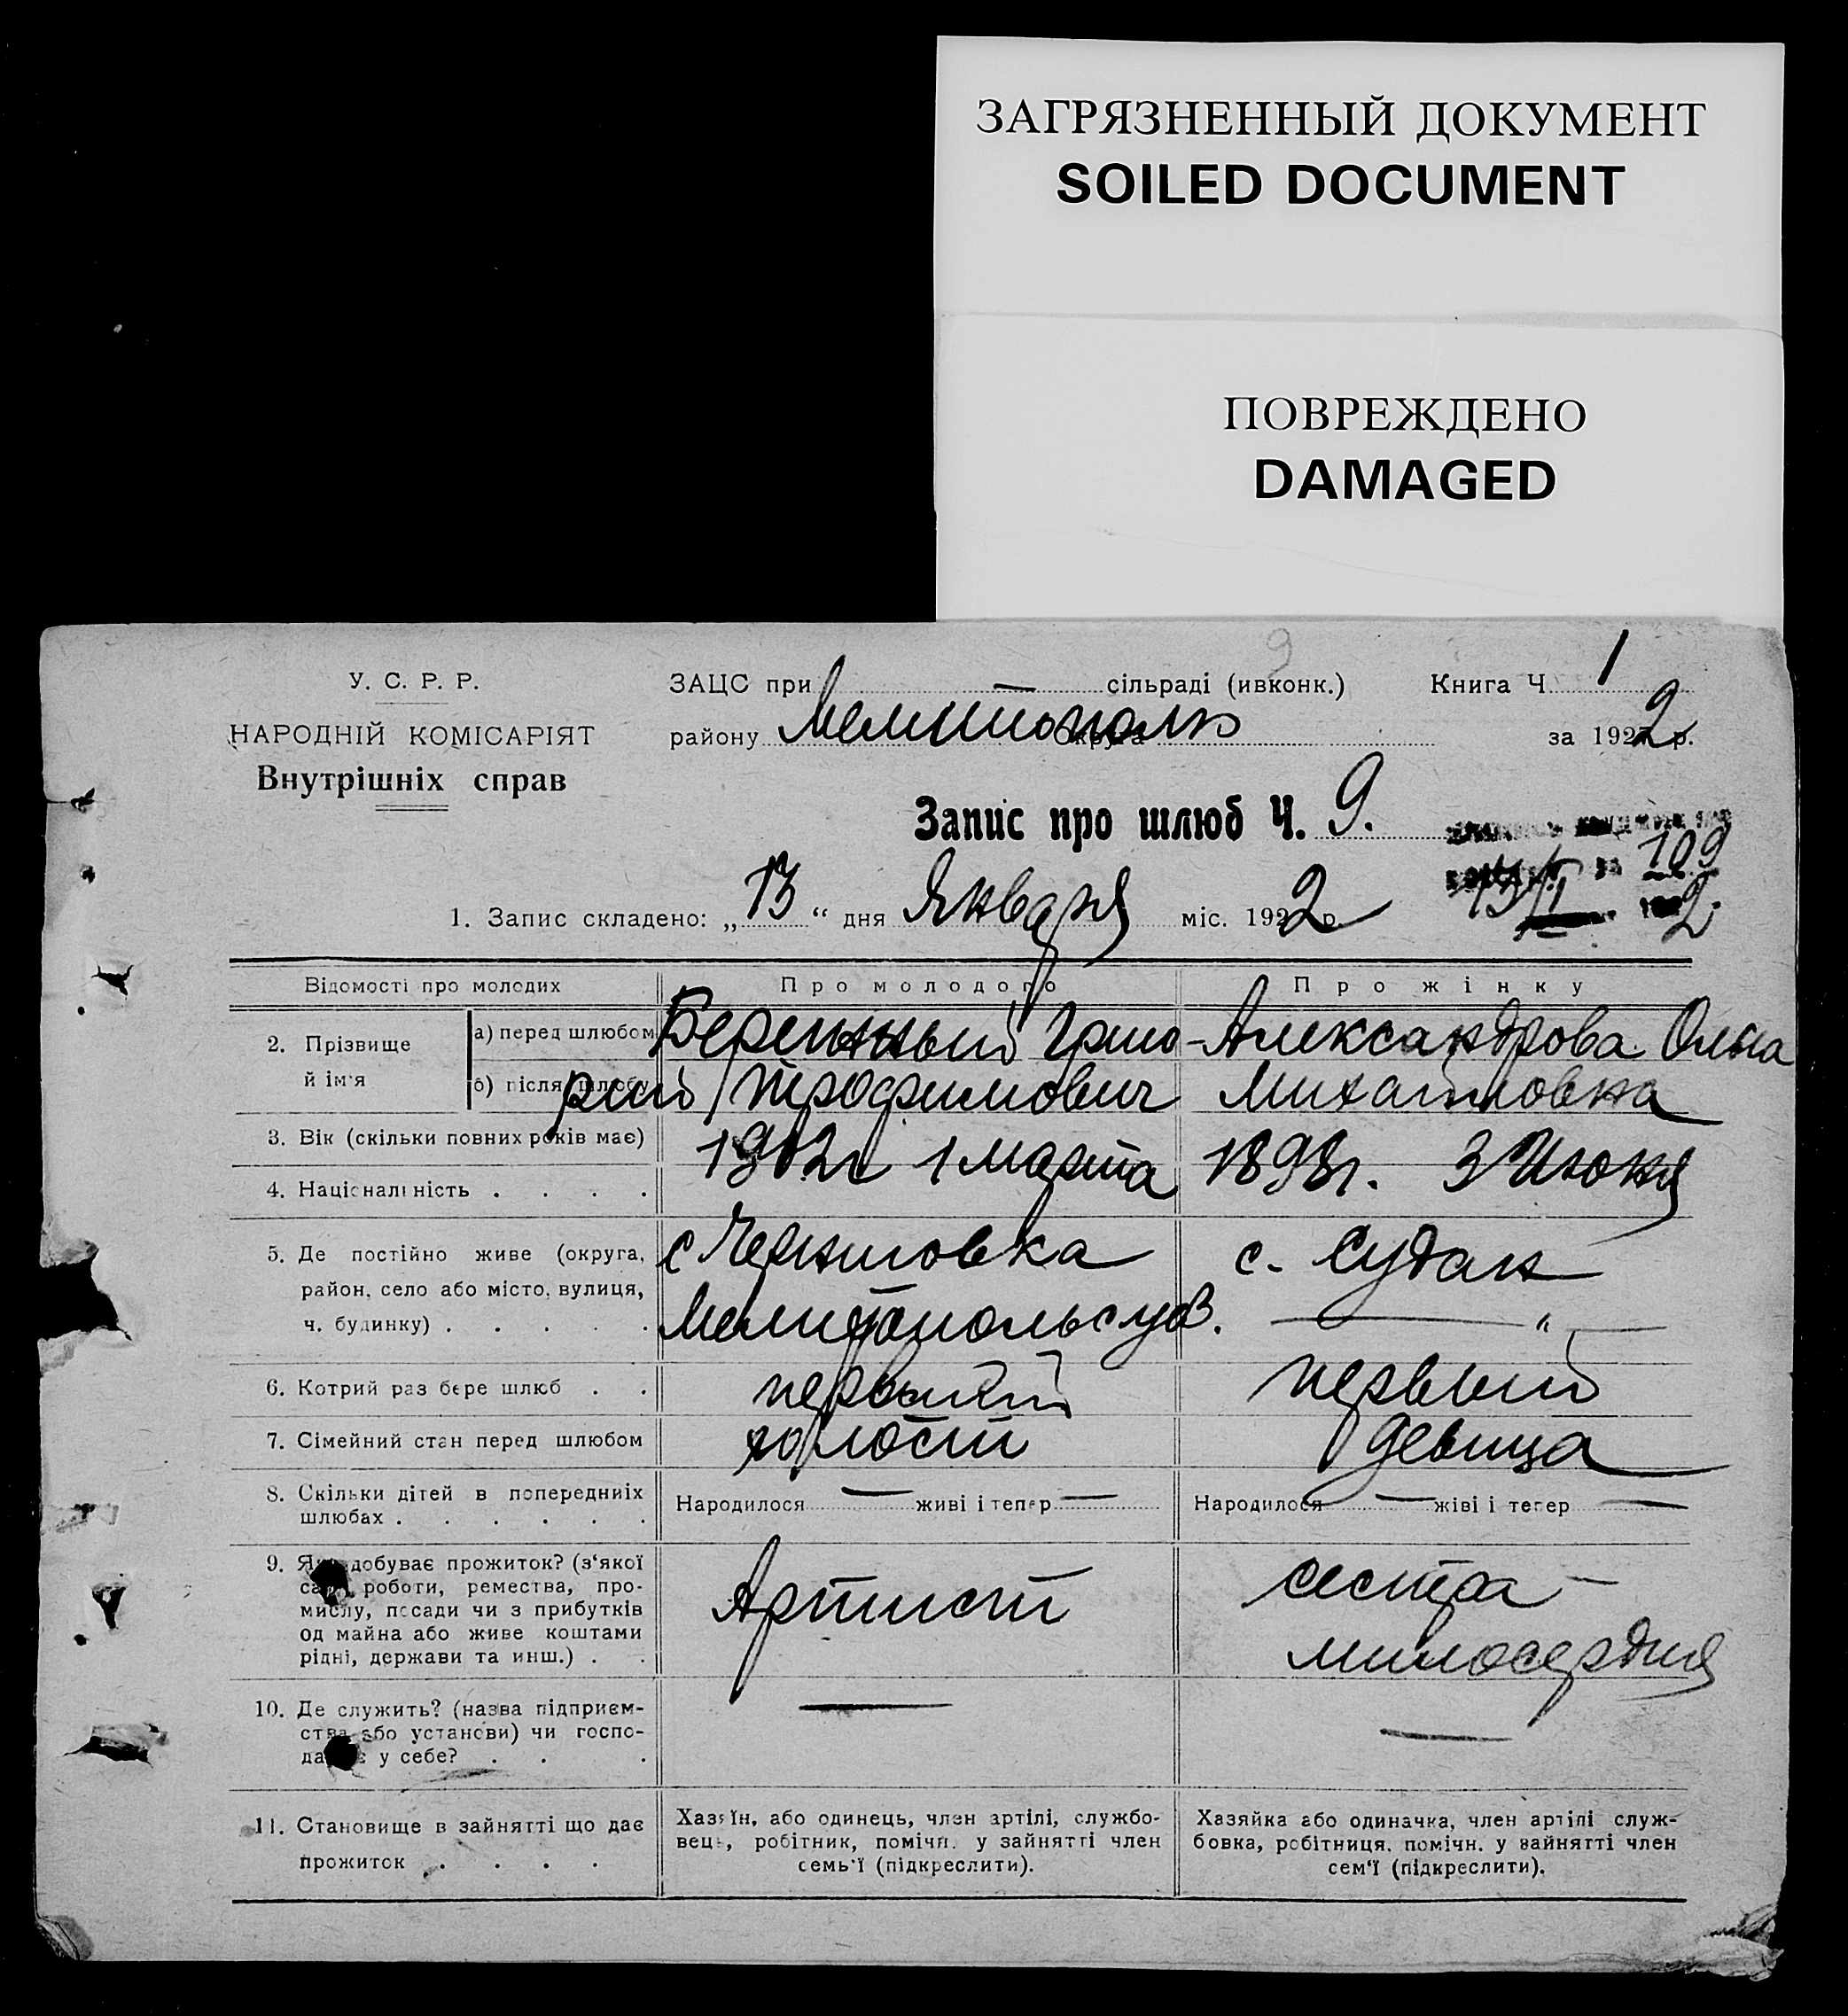 ЗАГРЯЗНЕННЫЙ ДОКУМЕНТ
SOILED DOCUMENT
ПОВРЕЖДЕНО
DAMAGED
9
У. С. Р. Р.
НАРОДНІЙ КОМІСАРІЯТ
Внутрішніх справ
ЗАЦС при — сільраді (ивконк.) Книга Ч. 1
району Мелитополь Округа за 1922 р.
Запис про шлюб Ч. 9.
109
1. Запис складено: „13“ дня Января міс. 1922 р.
Відомості про молодих Про молодого Про жінку
2. Прізвище й ім'я
а) перед шлюбом Григо- Александрова Ольга
б) після шлюбу рий Трофимович Михайловна
3. Вік (скільки повних років має) 1902г 1 марта 1898г. 3 Июня
4. Національність . . . .
5. Де постійно живе (округа, с Черниговка с. Судак
район, село або місто, вулиця,
ч. будинку) . . . . . Мелитопольс у. — „ —
6. Котрий раз бере шлюб . . первый первый
7. Сімейний стан перед шлюбом холост девица
8. Скільки дітей в попередніх Народилося — живі і тепер — Народилося — жіві і тепер —
шлюбах . . . . . .
9. Як добуває прожиток? (з'якої Артист сестра –
роботи, ремества, про- милосердия
мислу, посади чи з прибутків
од майна або живе коштами
рідні, держави та инш.) . .
10. Де служить? (назва підприєм- — —
ства або установи) чи госпо-
дарює у себе? . . .
11. Становище в зайнятті що дає Хазяїн, або одинець, член артілі, службо- Хазяйка або одиначка, член артілі служ-
прожиток . . . . вець, робітник, помічн. у зайнятті член бовка, робітниця, помічн. у зайнятті член
семь'ї (підкреслити). сем'ї (підкреслити).